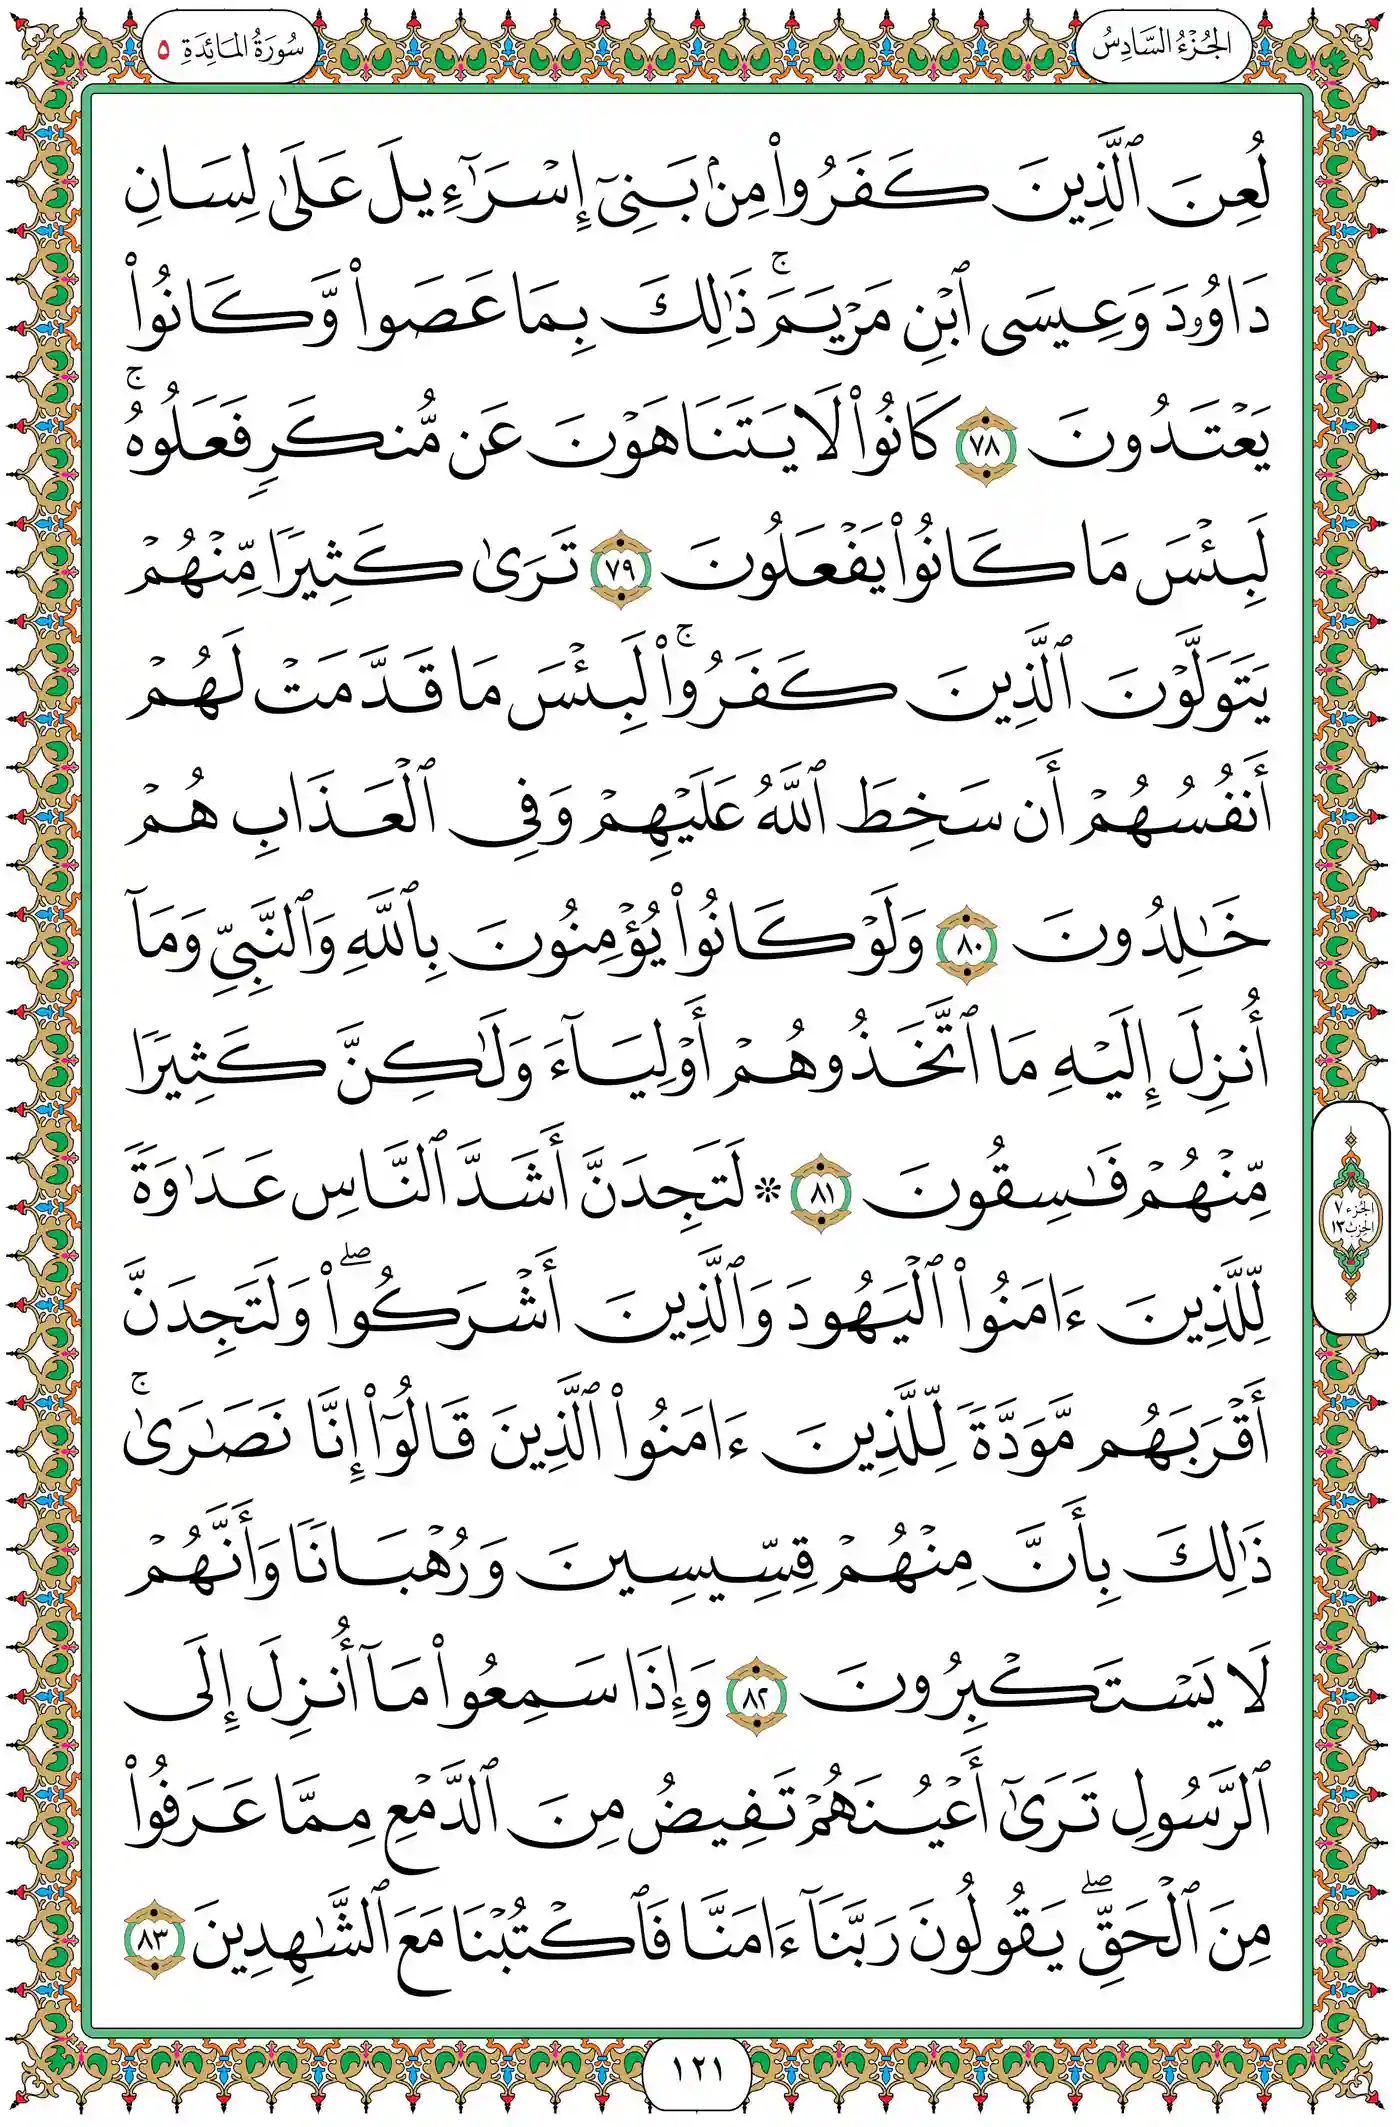 الجُزْءُ السَّادِسُ
سُورَةُ المَائِدَةِ ٥
لُعِنَ ٱلَّذِينَ كَفَرُواْ مِنۢ بَنِيٓ إِسۡرَٰٓءِيلَ عَلَىٰ لِسَانِ
دَاوُۥدَ وَعِيسَى ٱبۡنِ مَرۡيَمَۚ ذَٰلِكَ بِمَا عَصَواْ وَّكَانُواْ
يَعۡتَدُونَ ٧٨ كَانُواْ لَا يَتَنَاهَوۡنَ عَن مُّنكَرٖ فَعَلُوهُۚ
لَبِئۡسَ مَا كَانُواْ يَفۡعَلُونَ ٧٩ تَرَىٰ كَثِيرٗا مِّنۡهُمۡ
يَتَوَلَّوۡنَ ٱلَّذِينَ كَفَرُواْۚ لَبِئۡسَ مَا قَدَّمَتۡ لَهُمۡ
أَنفُسُهُمۡ أَن سَخِطَ ٱللَّهُ عَلَيۡهِمۡ وَفِي ٱلۡعَذَابِ هُمۡ
خَٰلِدُونَ ٨٠ وَلَوۡ كَانُواْ يُؤۡمِنُونَ بِٱللَّهِ وَٱلنَّبِيِّ وَمَآ
أُنزِلَ إِلَيۡهِ مَا ٱتَّخَذُوهُمۡ أَوۡلِيَآءَ وَلَٰكِنَّ كَثِيرٗا
مِّنۡهُمۡ فَٰسِقُونَ ٨١ ۞ لَتَجِدَنَّ أَشَدَّ ٱلنَّاسِ عَدَٰوَةٗ
لِّلَّذِينَ ءَامَنُواْ ٱلۡيَهُودَ وَٱلَّذِينَ أَشۡرَكُواْۖ وَلَتَجِدَنَّ
أَقۡرَبَهُم مَّوَدَّةٗ لِّلَّذِينَ ءَامَنُواْ ٱلَّذِينَ قَالُوٓاْ إِنَّا نَصَٰرَىٰۚ
ذَٰلِكَ بِأَنَّ مِنۡهُمۡ قِسِّيسِينَ وَرُهۡبَانٗا وَأَنَّهُمۡ
لَا يَسۡتَكۡبِرُونَ ٨٢ وَإِذَا سَمِعُواْ مَآ أُنزِلَ إِلَى
ٱلرَّسُولِ تَرَىٰٓ أَعۡيُنَهُمۡ تَفِيضُ مِنَ ٱلدَّمۡعِ مِمَّا عَرَفُواْ
مِنَ ٱلۡحَقِّۖ يَقُولُونَ رَبَّنَآ ءَامَنَّا فَٱكۡتُبۡنَا مَعَ ٱلشَّٰهِدِينَ ٨٣
الجزء ٧
الحزب ١٣
١٢١